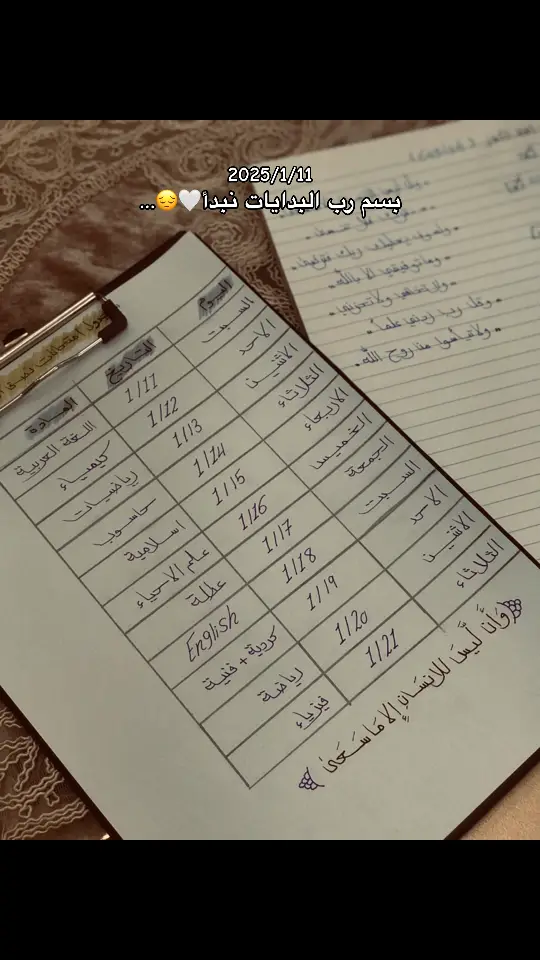 2025/1/11
بسم رب البدايات نبدأ🤍😔...
اليوم التاريخ المادة
السبت 1/11 اللغة العربية
الاحد 1/12 كيمياء
الاثنين 1/13 رياضيات
الثلاثاء 1/14 حاسوب
الاربعاء 1/15 اسلامية
الخميس 1/16 علم الاحياء
الجمعة 1/17 عطلة
السبت 1/18 English
الاحد 1/19 كردية + فنية
الاثنين 1/20 رياضة
الثلاثاء 1/21 فيزياء
وَأَن لَّيسَ للانسَانِ إلا مَا سَعَىٰ
ولسوف يعطيك ربك فترضى.
وما توفيقي الا بالله.
ولا تحزني.
وقل رب زدني علماً.
ولا تيأسوا من روح الله.